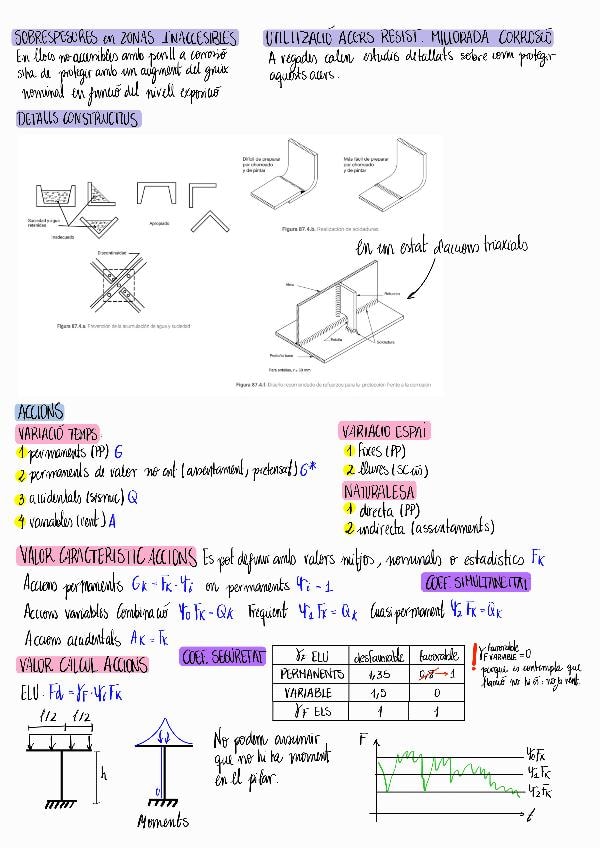 SOBRESPESORES en ZONAS INACCESIBLES
En llocs no accesibles amb perill a corrosió
s'ha de protegir amb un augment del gruix
nominal en funció del nivell exposició
UTILITZACIÓ ACERS RESIST. MILLORADA CORROSIÓ
A vegades calen estudis detallats sobre com protegir
aquests acers.
DETALLS CONSTRUCTIUS
Suciedad y agua
retenidas
Inadecuado
Apropiado
Discontinuidad
Figura 87.4.a. Prevención de la acumulación de agua y suciedad
Difícil de preparar
por chorreado
y de pintar
Más fácil de preparar
por chorreado
y de pintar
Figura 87.4.b. Realización de soldaduras
En un estat d'accions triaxials
Alma
Refuerzo
Entalla
Soldadura
Pletina base
Para entallas, r ≥ 50 mm
Figura 87.4.f. Diseño recomendado de refuerzos para la protección frente a la corrosión
ACCIONS
VARIACIÓ TEMPS
1 permanents (PP) G
2 permanents de valor no cnt (assentament, pretensat) G*
3 accidentals (sísmic) Q
4 variables (vent) A
VARIACIÓ ESPAI
1 Fixes (PP)
2 lliures (SC ús)
NATURALESA
1 directa (PP)
2 indirecta (assentaments)
VALOR CARACTERISTIC ACCIONS Es pot definir amb valors mitjos, nominals o estadistics Fk
Accions permanents Gk = Fk · Ψi on permanents Ψi = 1
COEF. SIMULTANEITAT
Accions variables Combinació Ψ0 Fk = Qk Freqüent Ψ1 Fk = Qk Cuasipermanent Ψ2 Fk = Qk
Accions accidentals Ak = Fk
VALOR CÀLCUL ACCIONS
ELU: Fd = γF · Ψi Fk
COEF. SEGURETAT
γF ELU desfavorable favorable
PERMANENTS 1,35 0,8 → 1
VARIABLE 1,5 0
γF ELS 1 1
! γ favorable F VARIABLE = 0
perquè es contempla que
l'acció no hi és: no hi vent.
l/2 l/2
h
0
Moments
No podem assumir
que no hi ha moment
en el pilar.
F
Ψ0 Fk
Ψ1 Fk
Ψ2 Fk
t